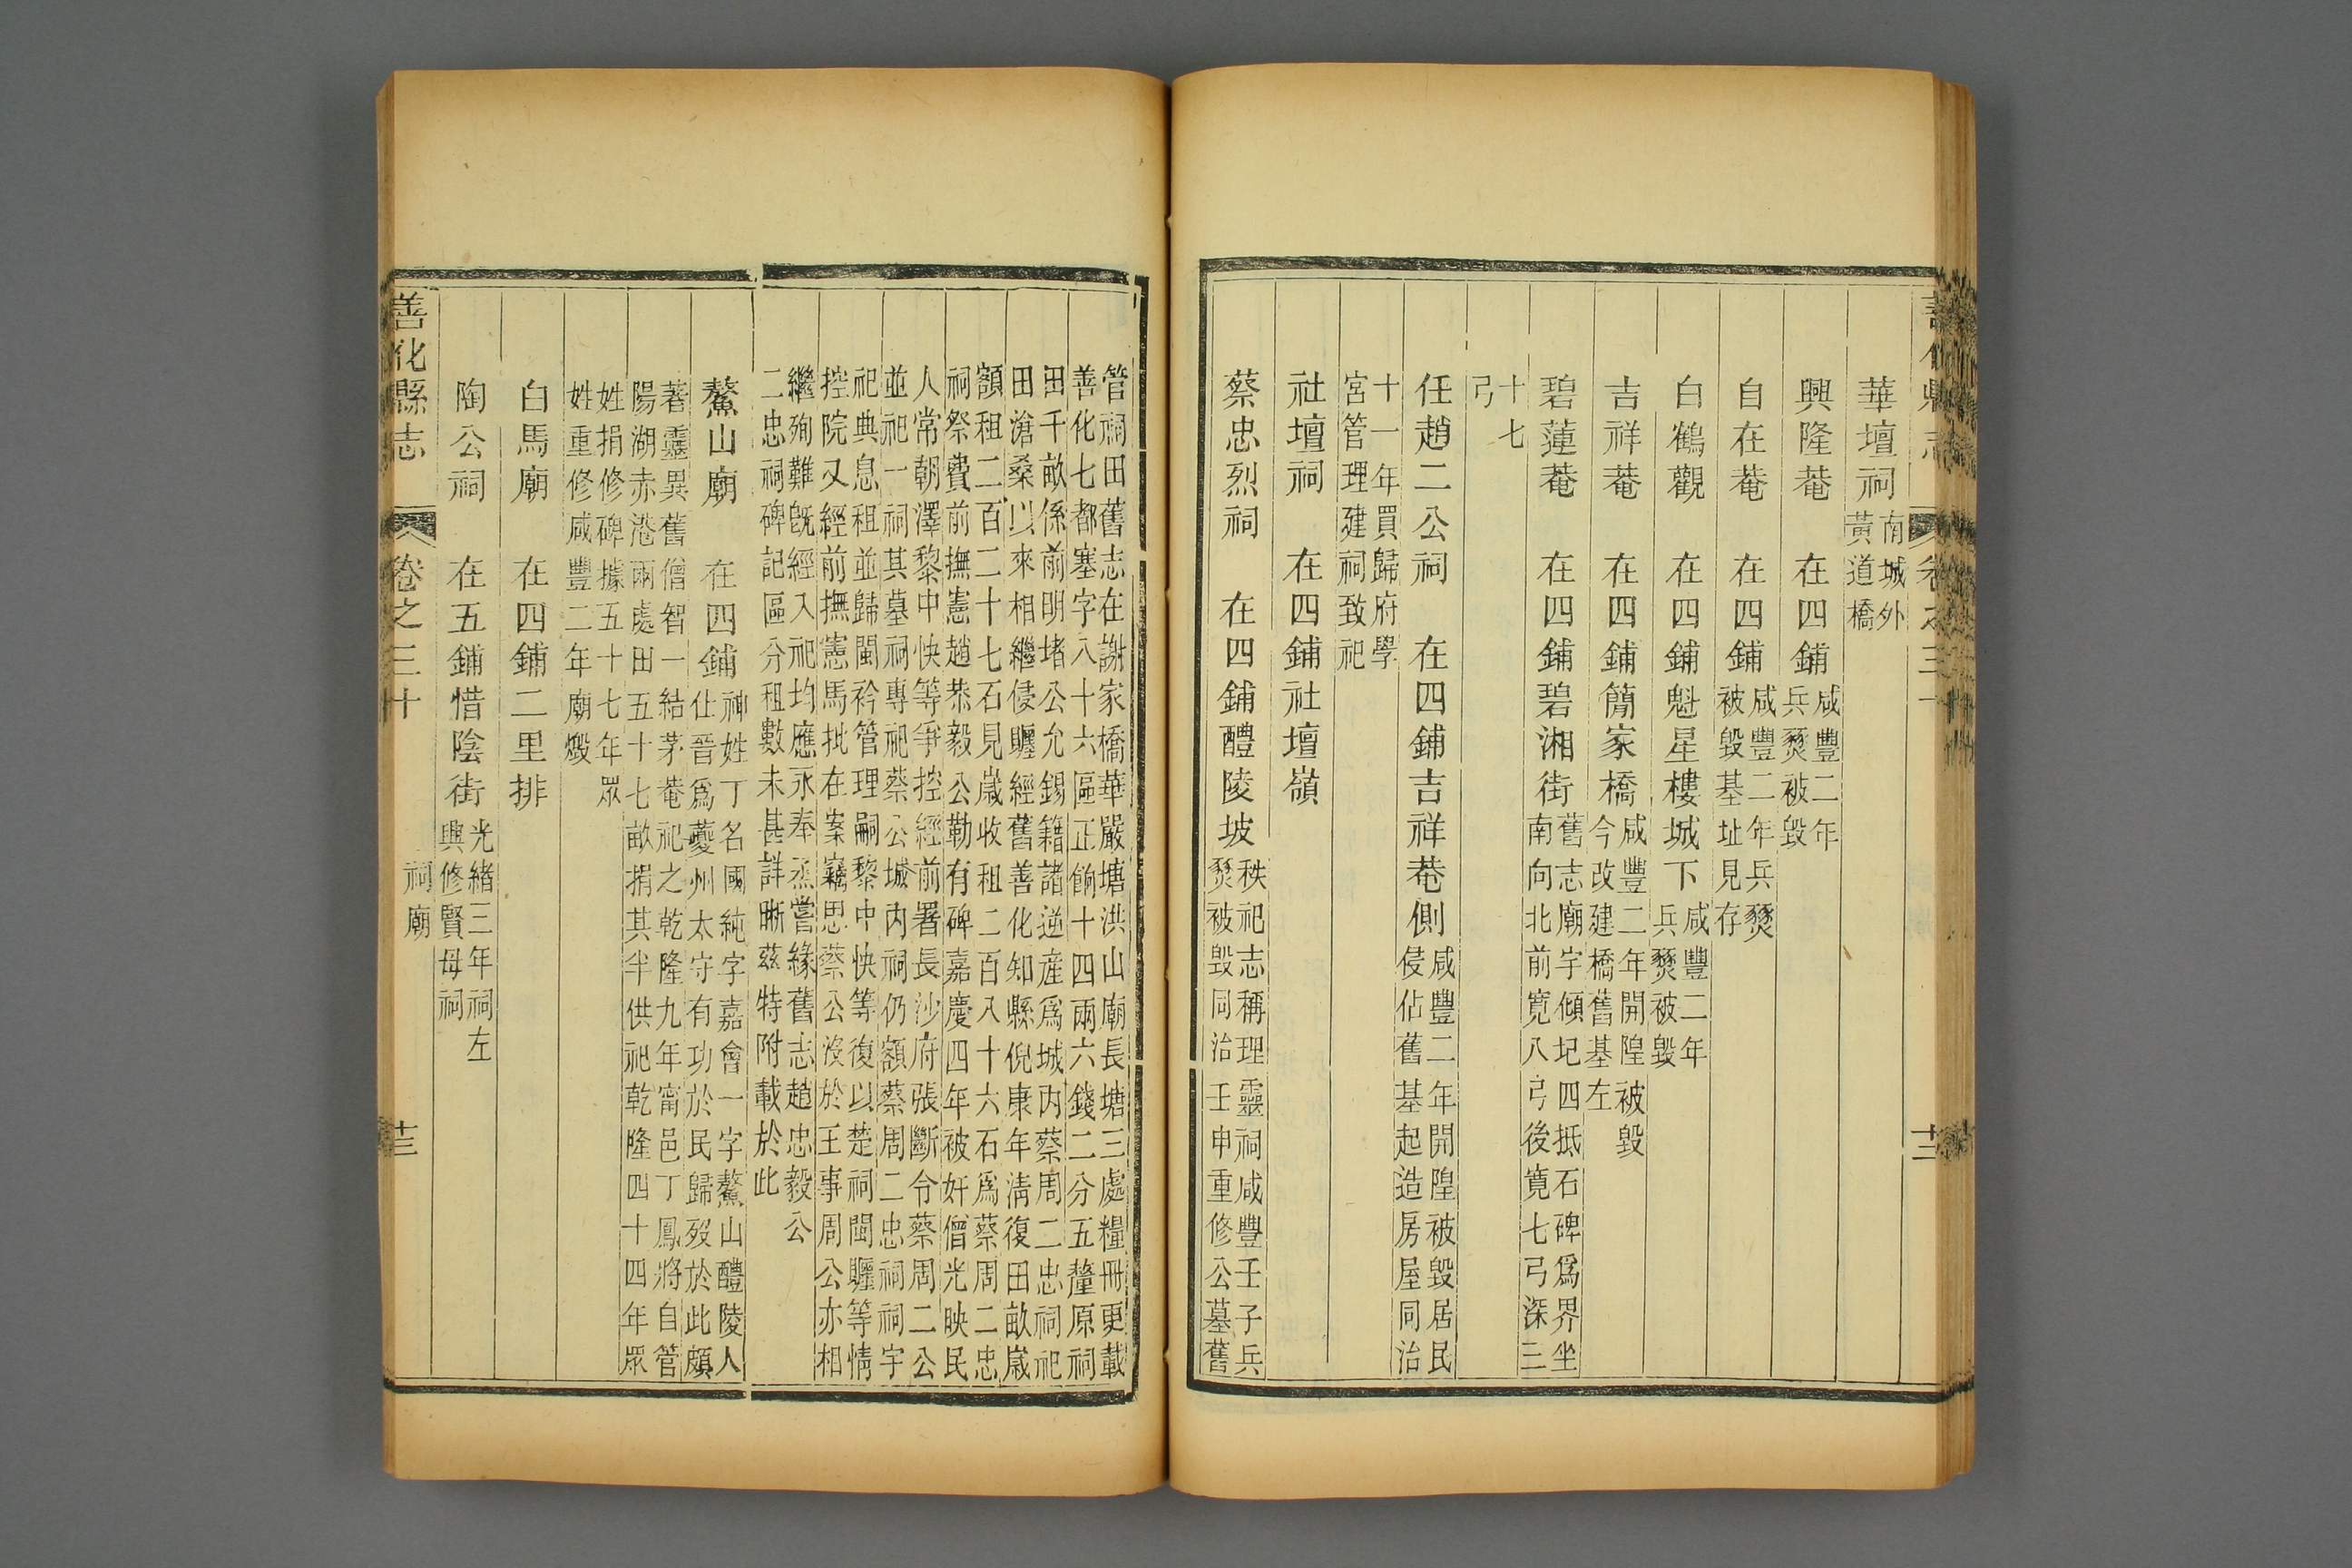 善化縣志 卷之三十 十二
華壇祠 南城外
黃道橋
興隆菴 在四鋪 咸豐二年
兵燹被毀
自在菴 在四鋪 咸豐二年兵燹
被毀基址見存
白鶴觀 在四鋪魁星樓城下 咸豐二年
兵燹被毀
吉祥菴 在四鋪簡家橋 咸豐二年開隍被毀
今改建橋舊基左
碧蓮菴 在四鋪碧湘街 舊志廟宇傾圮四抵石碑爲界坐
南向北前寬八弓後寬七弓深三
十七
弓
任趙二公祠 在四鋪吉祥菴側 咸豐二年開隍被毀居民
侵佔舊基起造房屋同治
十一年買歸府學
宮管理建祠致祀
社壇祠 在四鋪社壇嶺
蔡忠烈祠 在四鋪醴陵坡 秩祀志稱理靈祠咸豐壬子兵
燹被毀同治壬申重修公墓舊
管祠田舊志在謝家橋華嚴塘洪山廟長塘三處糧冊更載
善化七都塞字八十六區正餉十四兩六錢二分五釐原祠
田千畝係前明堵公允錫籍諸逆產爲城内蔡周二忠祠祀
田滄桑以來相繼侵贓經舊善化知縣倪康年淸復田畝嵗
額租二百二十七石見嵗收租二百八十六石爲蔡周二忠
祠祭費前撫憲趙恭毅公勒有碑嘉慶四年被奸僧光映民
人常朝澤黎中快等爭控經前署長沙府張斷令蔡周二公
並祀一祠其墓祠專祀蔡公城内祠仍額蔡周二忠祠祠宇
祀典息租並歸閩衿管理嗣黎中快等復以楚祠閩贓等情
控院又經前撫憲馬批在案竊思蔡公沒於王事周公亦相
繼殉難既經入祀均應永奉烝嘗緣舊志趙忠毅公
二忠祠碑記區分租數未甚詳晰茲特附載於此
鰲山廟 在四鋪 神姓丁名國純字嘉會一字鰲山醴陵人
仕晉爲夔州太守有功於民歸歿於此頗
著靈異舊僧智一結茅菴祀之乾隆九年甯邑丁鳳將自管
陽湖赤港兩處田五十七畝捐其半供祀乾隆四十四年眾
姓捐修碑據五十七年眾
姓重修咸豐二年廟燬
白馬廟 在四鋪二里排
陶公祠 在五鋪惜陰街 光緒三年祠左
興修賢母祠
善化縣志 卷之三十 祠廟 十三